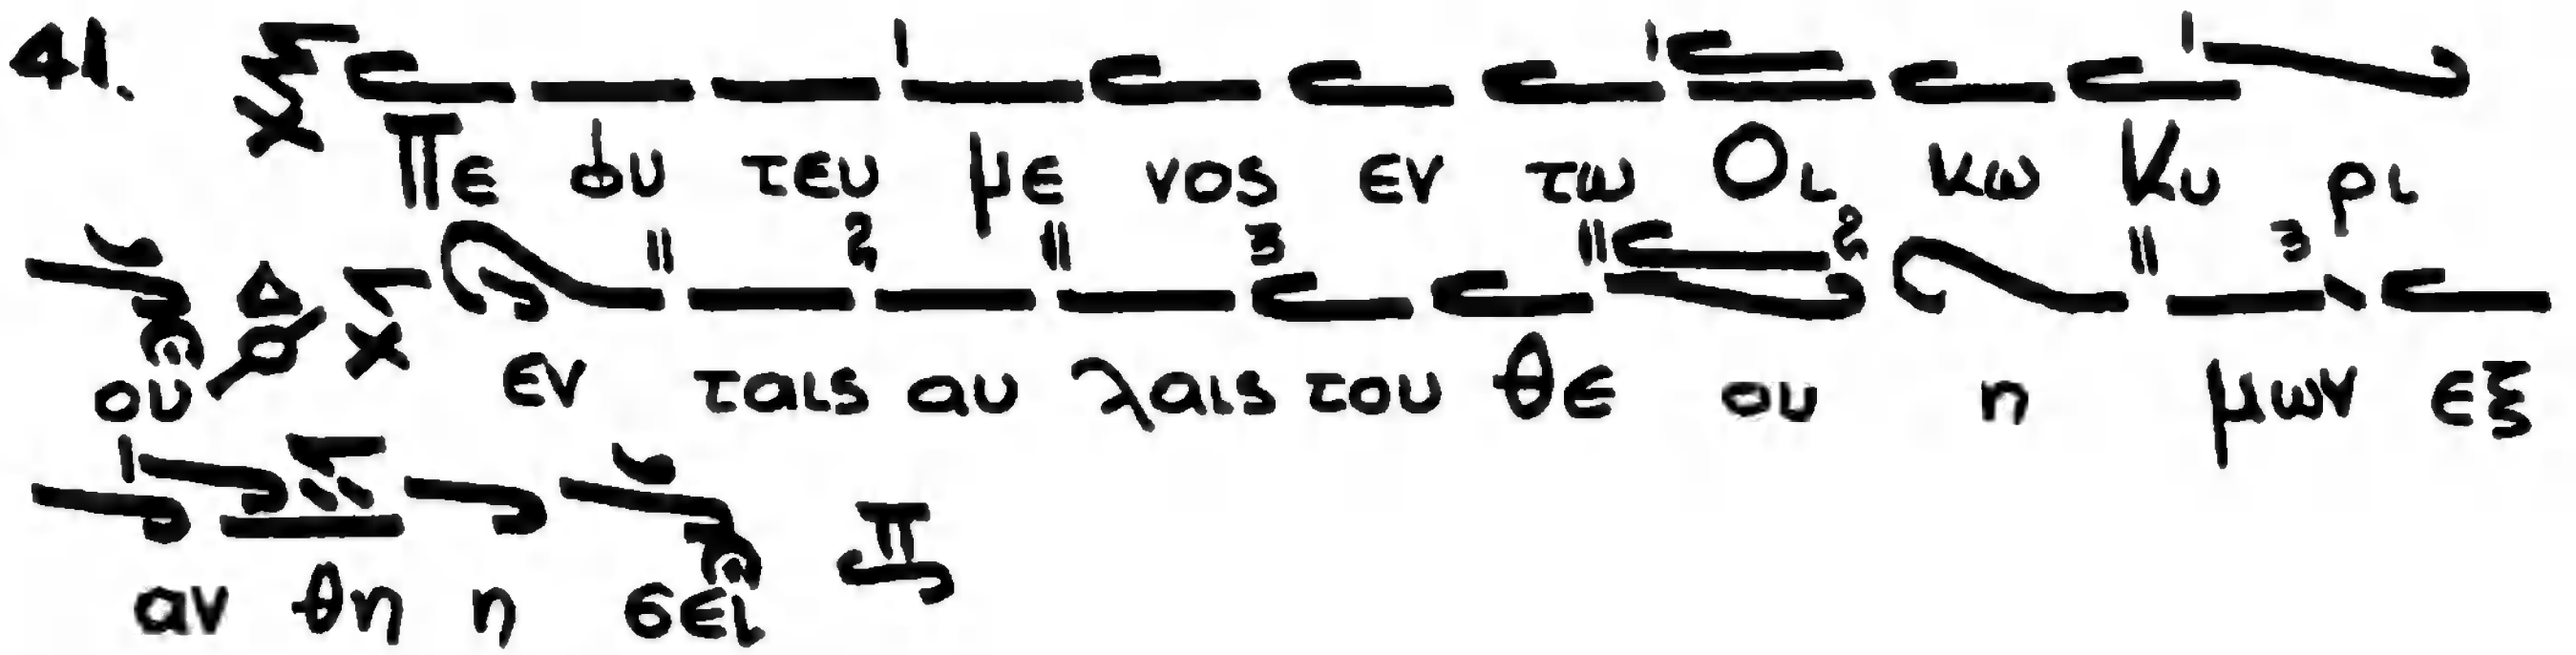 41. Πε φυ τευ με νος εν τω Οι κω Κυ ρι
ου Δ εν ταις αυ λαις του θε ου η μων εξ
αν θη η σει π